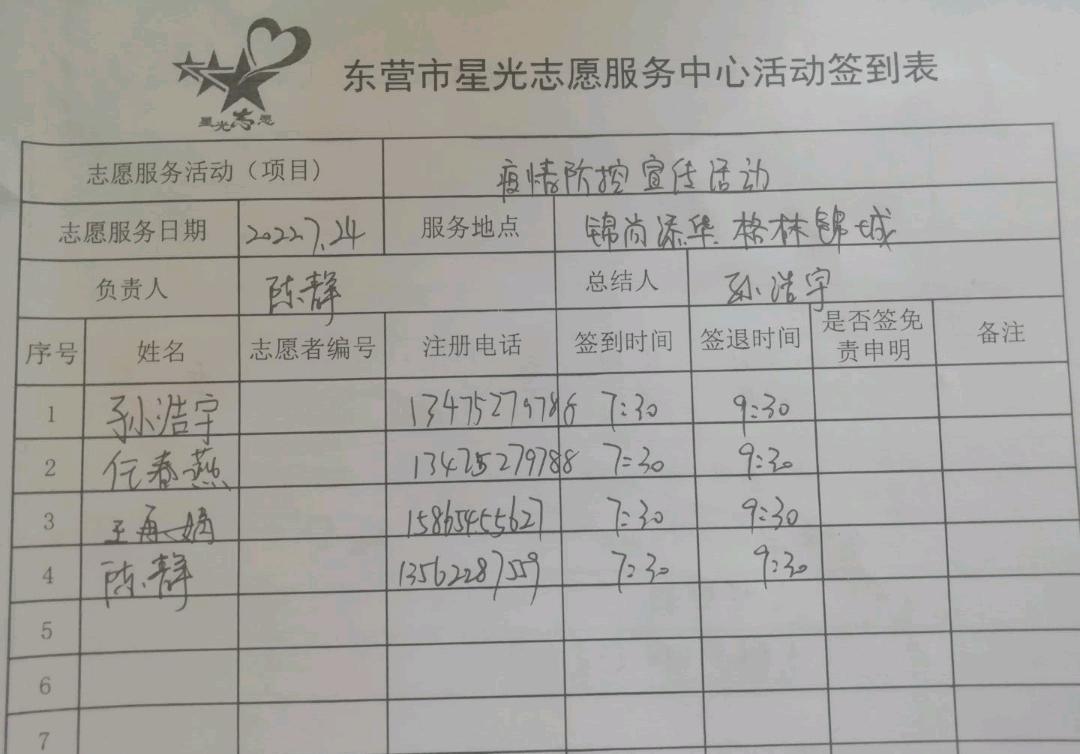 星光志愿
东营市星光志愿服务中心活动签到表
志愿服务活动（项目） 疫情防控宣传活动
志愿服务日期 2022.7.24 服务地点 锦尚添华 格林锦城
负责人 陈静 总结人 孙浩宇
序号 姓名 志愿者编号 注册电话 签到时间 签退时间 是否签免责申明 备注
1 孙浩宇 13475279786 7:30 9:30
2 任春燕 13475279788 7:30 9:30
3 王再娟 15865455627 7:30 9:30
4 陈静 13562287559 7:30 9:30
5
6
7